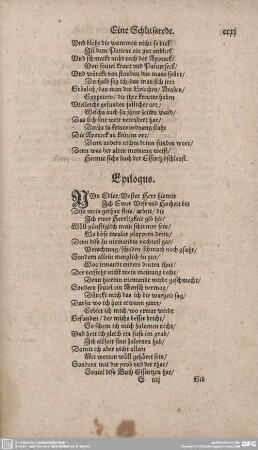 Eine Schlußrede. ccxj
Und bleht die wammen nicht so dick/
Ist dem Patient ein gut anblick/
Und schmeckt nicht nach der Apoteck/
Wer souiel kraut und Puluer
Und würckt von stunden das mans spürt/
Derhalb sag ich/ das man sich irrt
Gröblich/ das man den Griechen/ Araben/
Egyptiern/ die ihre kreuter haben
Vielleicht gefunden solcher art/
Welchs auch zu ihrer zeiten ward/
Das sich nun weit verendert hat/
Darzu in keiner ordnung staht
Die Apoteck zu künnen ort/
Denn anders nichts drinn funden wort/
Denn was der alten meinung weißt/
Hiemit sichs buch der Essentz bschleust.
Epilogus.
NUn Edler/ Vester Herr hiemit
Ich Ewer Vest und Hoheit bit
Diß mein gethan fleis/ arbeit/ die
Ich ewer Herrligkeit gib hie/
Wöll günstiglich mein schirmer sein/
Wo böse meuler plappern drein/
Denn diß zu niemandts nachteil gar/
Verachtung/ schaden/ schmach noch gfahr/
Sondern allein menglich zu gut/
Was jemandt anders deuten thut/
Der verstehe nicht mein meinung recht/
Denn hierinn niemandt wirdt geschmecht/
Sondern souiel ein Mensch vermag/
Dünckt mich das ich die warheit sag/
Darzu wo ich hett etwann geirrt/
Erbiet ich mich/ wo etwar wirdt
Gefunden/ der michs besser bricht/
So schem ich mich zulernen nicht/
Und hett ich gleich ein fuß im grab/
Ich allzeit sinn zulernen hab/
Damit ich aber nicht allein
Mit worten wöll gehöret sein/
Sondern mit der prob und der that/
Souiel diß Buch Essentzen hat/
S iij Gib